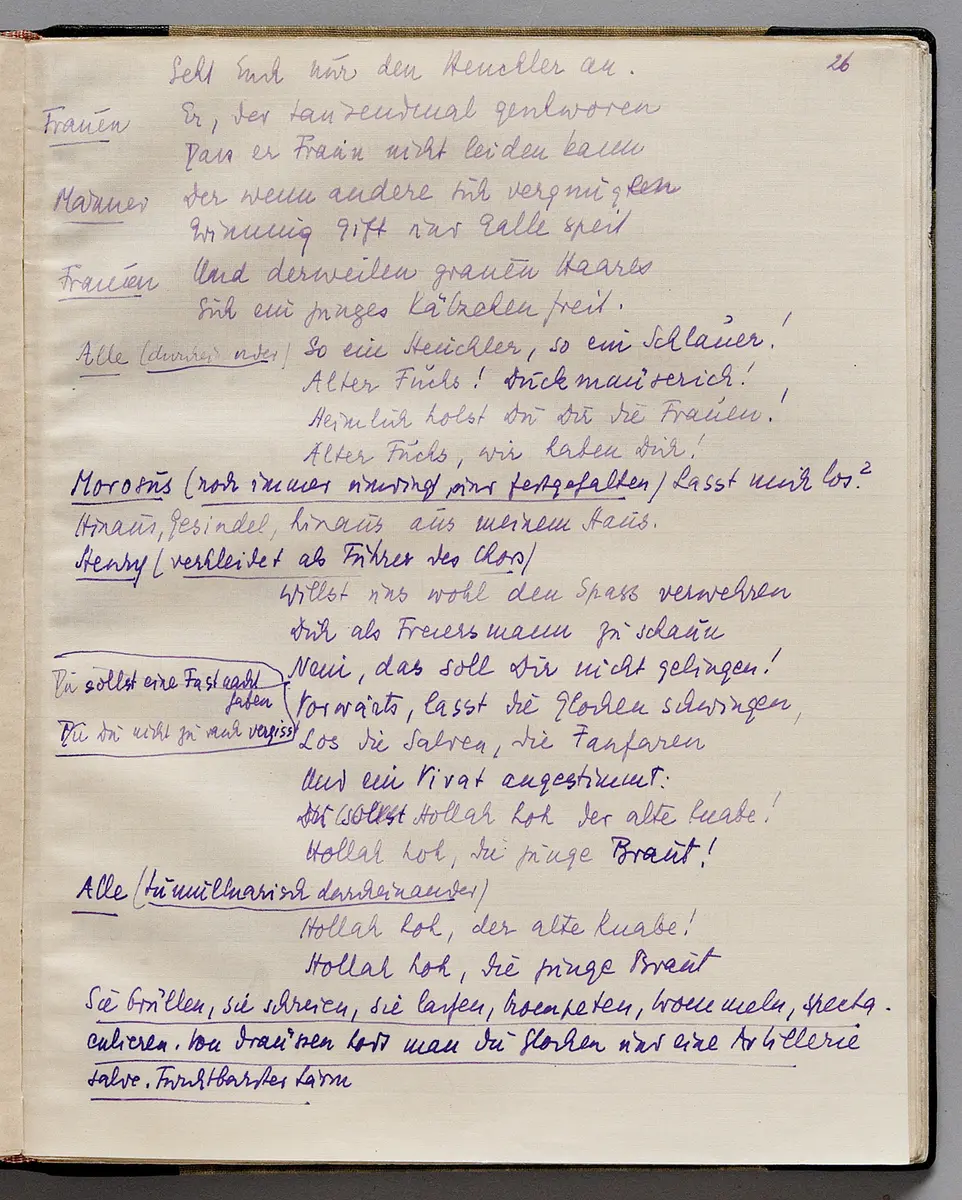 26
Seht Euch nur den Heuchler an.
Frauen Er, der tausendmal geschworen
Dass er Fraun nicht leiden kann
Männer Der wenn andere sich vergnügten
Grimmig Gift und Galle speit
Frauen Und derweilen grauen Haares
Sich ein junges Kätzchen freit.
Alle (durcheinander) So ein Heuchler, so ein Schlauer!
Alter Fuchs! Duckmauserich!
Heimlich holst Du Dir die Frauen!
Alter Fuchs, wir haben Dich!
Morosus (noch immer umringt und festgehalten) Lasst mich los!
Hinaus, Gesindel, hinaus aus meinem Haus.
Henry (verkleidet als Führer des Chors)
Willst uns wohl den Spass verwehren
Dich als Freiersmann zu schaun
Nein, das soll Dir nicht gelingen!
Du sollst eine Fastnacht
haben
Die Du nicht zu rasch vergisst
Vorwärts, lasst die Glocken schwingen,
Los die Salven, die Fanfaren
Und ein Vivat angestimmt:
Du sollst Hollah hoh der alte Knabe!
Hollah hoh, die junge Braut!
Alle (tumultuarisch durcheinander)
Hollah hoh, der alte Knabe!
Hollah hoh, die junge Braut
Sie brüllen, sie schreien, sie laufen, trompeten, trommeln, specta-
culieren. Von draussen hört man die Glocken und eine Artillerie
salve. Furchtbarster Lärm